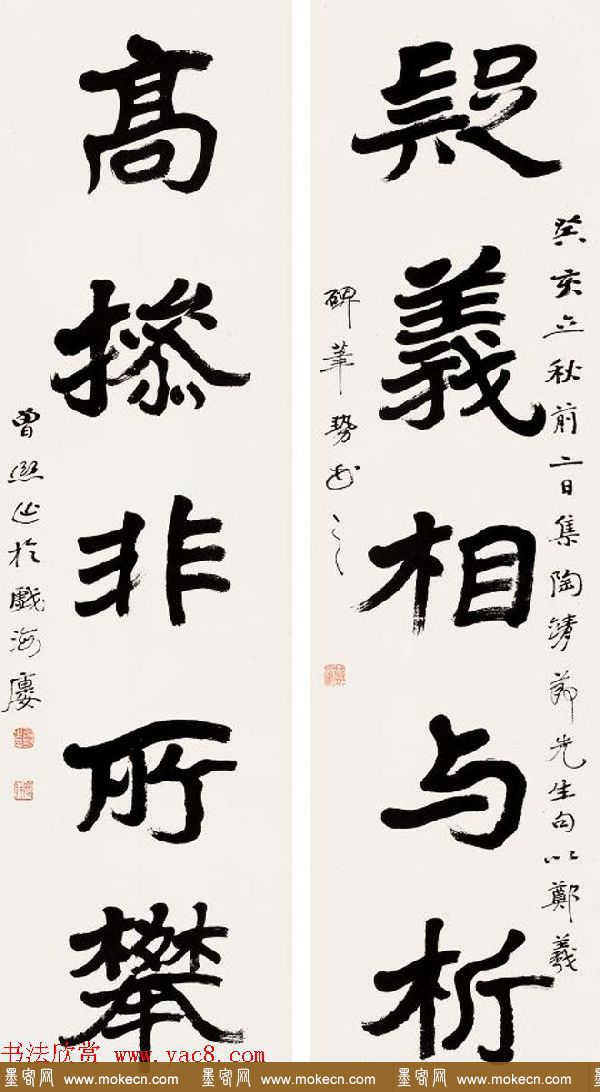 疑義相与析
癸亥立秋前二日集陶靖節先生句以鄭羲
碑筆勢為之
高操非所攀
曾熙作於戲海廔
书法欣赏 www.yac8.com
墨客网 www.mokecn.com 墨客网 www.mokecn.com 墨客网 www.mokecn.com